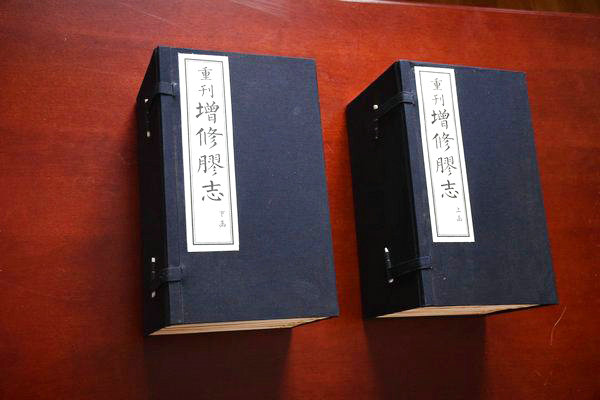 重刊
增修膠志
下函
重刊
增修膠志
上函